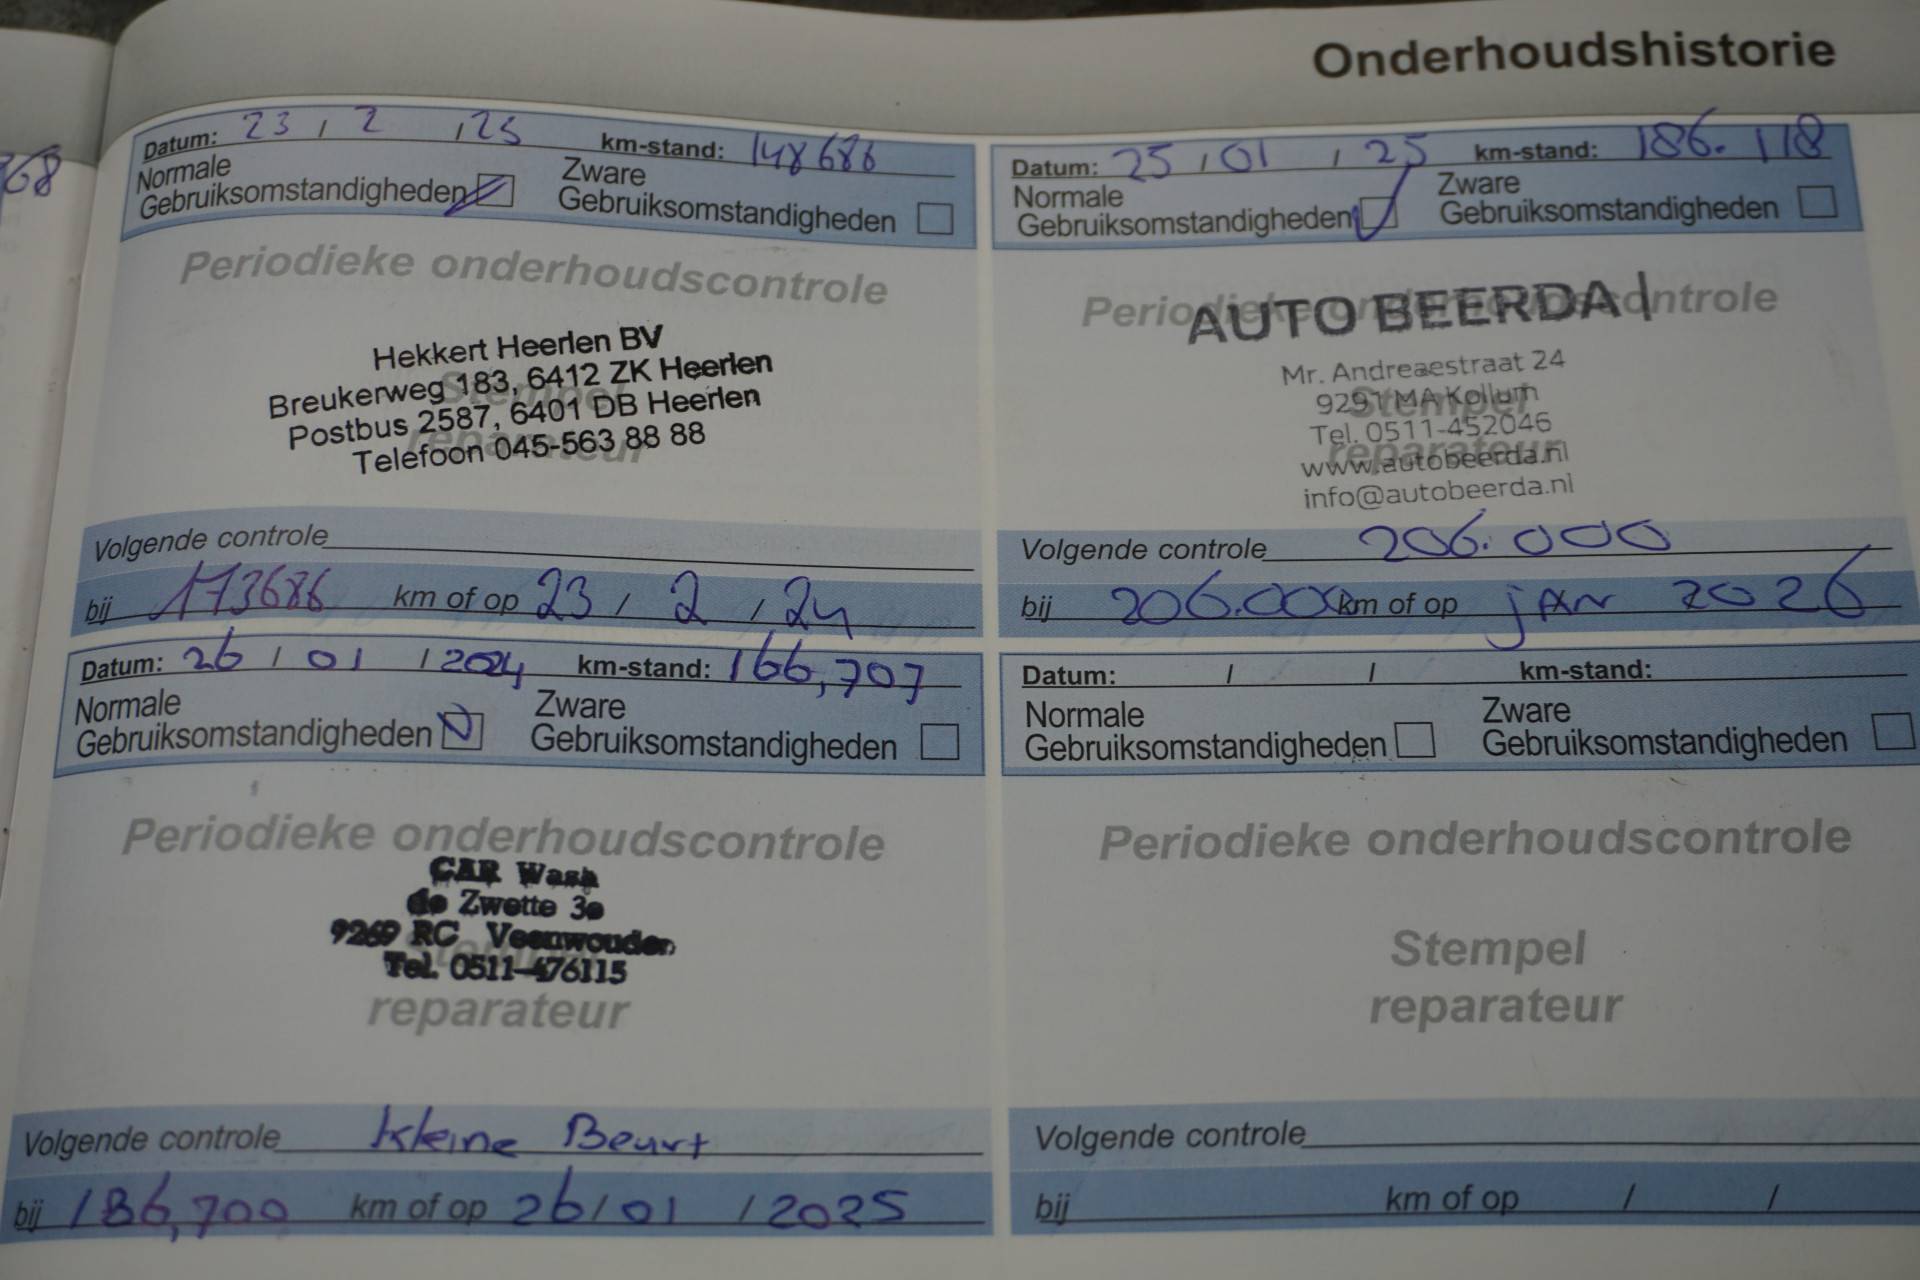 Onderhoudshistorie
68
Datum: 23 / 2 / 23 km-stand: 148686
Normale Gebruiksomstandigheden Zware Gebruiksomstandigheden
Periodieke onderhoudscontrole
Stempel
reparateur
Hekkert Heerlen BV
Breukerweg 183, 6412 ZK Heerlen
Postbus 2587, 6401 DB Heerlen
Telefoon 045-563 88 88
Volgende controle
bij 173686 km of op 23 / 2 / 24
Datum: 26 / 01 / 2024 km-stand: 166,707
Normale Gebruiksomstandigheden Zware Gebruiksomstandigheden
Periodieke onderhoudscontrole
CAR Wash
de Zwette 3e
9269 RC Veenwouden
Tel. 0511-476115
reparateur
Volgende controle kleine Beurt
bij 186,700 km of op 26 / 01 / 2025
Datum: 25 / 01 / 25 km-stand: 186.118
Normale Gebruiksomstandigheden Zware Gebruiksomstandigheden
Periodieke onderhoudscontrole
Stempel
reparateur
AUTO BEERDA |
Mr. Andreaestraat 24
9291 MA Kollum
Tel. 0511-452046
www.autobeerda.nl
info@autobeerda.nl
Volgende controle 206.000
bij 206.000 km of op jan 2026
Datum: / / km-stand:
Normale Gebruiksomstandigheden Zware Gebruiksomstandigheden
Periodieke onderhoudscontrole
Stempel
reparateur
Volgende controle
bij km of op / /